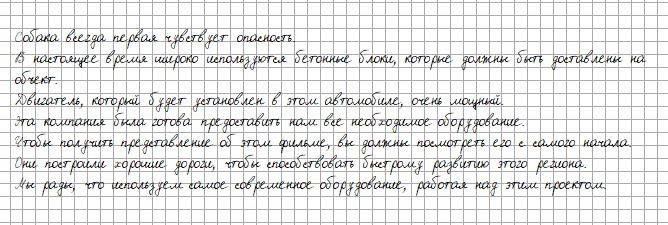 Собака всегда первая чувствует опасность.
В настоящее время широко используются бетонные блоки, которые должны быть доставлены на
объект.
Двигатель, который будет установлен в этом автомобиле, очень мощный.
Эта компания была готова предоставить нам все необходимое оборудование.
Чтобы получить представление об этом фильме, вы должны посмотреть его с самого начала.
Они построили хорошие дороги, чтобы способствовать быстрому развитию этого региона.
Мы рады, что используем самое современное оборудование, работая над этим проектом.